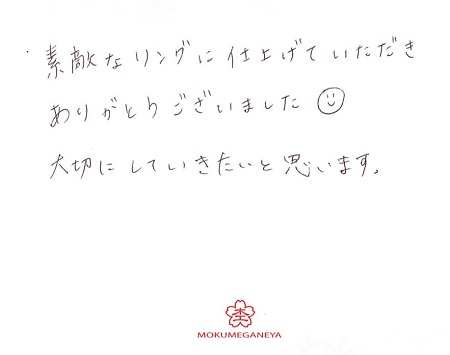 素敵なリングに仕上げていただき
ありがとうございました
大切にしていきたいと思います。
杢
MOKUMEGANEYA